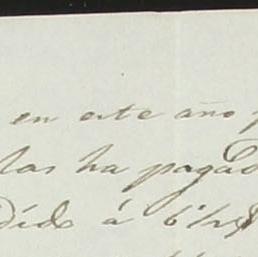 en este año p
las ha pagad
dido á 6